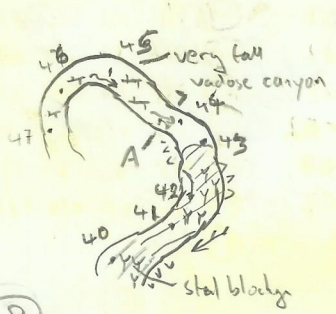 45
very tall
46
vadose canyon
44
47
43
A
42
41
40
stal blockage